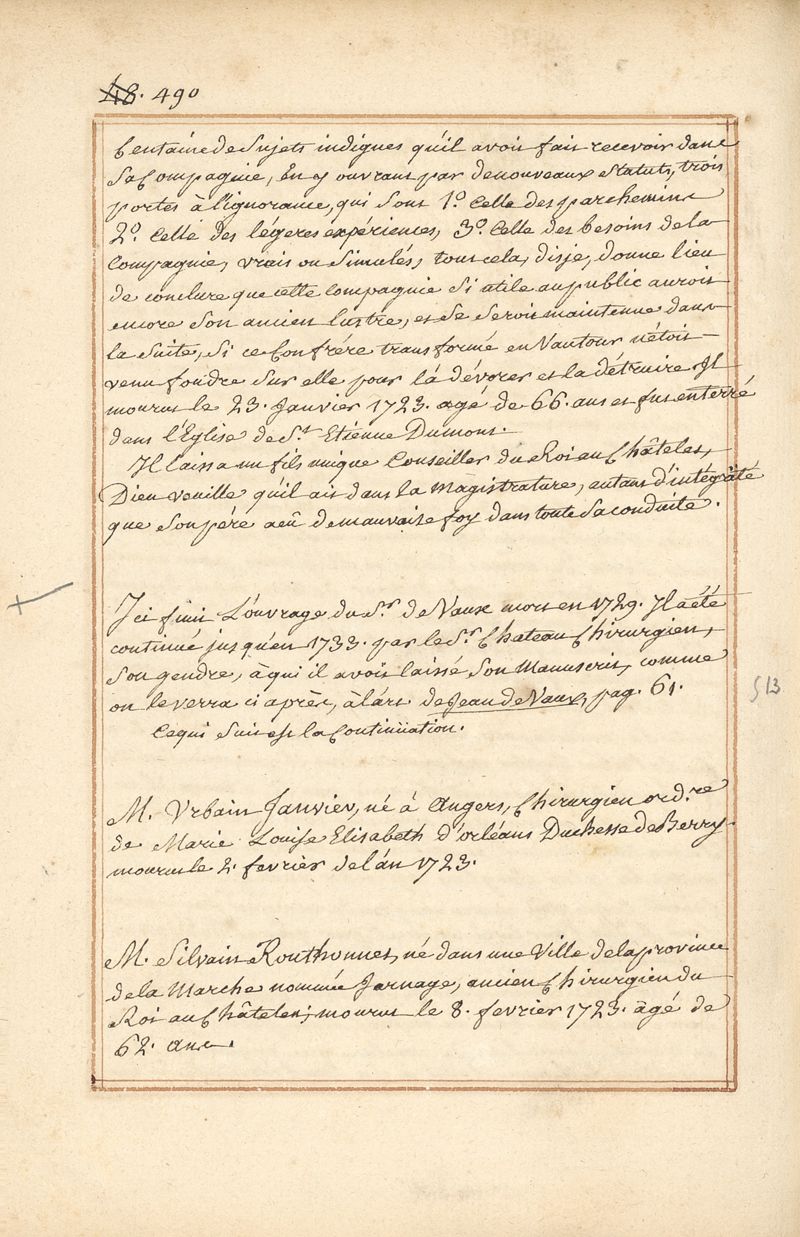 48. 490
Centaine de Sujets indignes qu'il avoit fait recevoir dans
Sa Compagnie, En y ouvrant par de nouveaux Statuts, trois
portes à l'ignorance, qui sont 1.º Celle des parchemins
2.º Celle des légeres expériences, 3.º Celle des besoins de la
Compagnie, vrais ou Simulés, tout cela, disje, donne lieu
de conclure que cette Compagnie Si utile au public auroit
encore Son ancien lustre, et Se Seroit maintenue dans
la Suite, Si ce Confrére transformé en Vautour n'étoit
venu fondre Sur elle pour la dévorer et la détruire. Il
mourut le 23. Janvier 1723. agé de 66. ans et fut enterré
dans l'Eglise de S.t Etienne Dumont.
Il laissa un fils unique Conseiller du Roi au Châtelet,
Dieu veuille qu'il ait dans la Magistrature, autant d'intégrité
que Son pére a eû de mauvaise foy dans toute Sa conduite.
Ici finit L'ouvrage du S.r de Vaux mort en 1729. Il a été
continué jusqu'en 1733. par le S.r Chateau Chirurgien,
Son gendre, à qui il avoit laissé Son Manuscrit, comme
on le verra ci après, à l'art. de Jean de Vaux, pag. 61.
§ 13
Ce qui Suit est la Continüation.
M. Urbain Janvier, né à Angers, Chirurgien ord.re
de Marie Louise Elisabeth d'orléans Duchesse de Berry.
mourut le 2. fevrier de l'an 1723.
M. Silvain Routhonnet, né dans une Ville de la province
de la Marche nommée Jarnage, ancien Chirurgien du
Roi au Châtelet, mourut le 8. fevrier 1723. âgé de
62. ans.